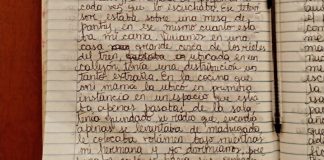 cada vez que lo escuchaba. Ese
sor, estaba sobre una mesa de
en ese mismo cuarto esta
ba mi cama, vivíamos en una
casa grande cerca de los rieles
del tren, ubicada en un
callejón, tenía una distribución un
tanto extraña. En la cocina que
mi mamá la ubicó en primera
instancia en un espacio que esta
ba apenas pasabas de la sala,
tenía su radio que, cuando
apenas se levantaba de madrugada
le colocaba volumen bajo mientras
mi hermana y yo dormíamos, por